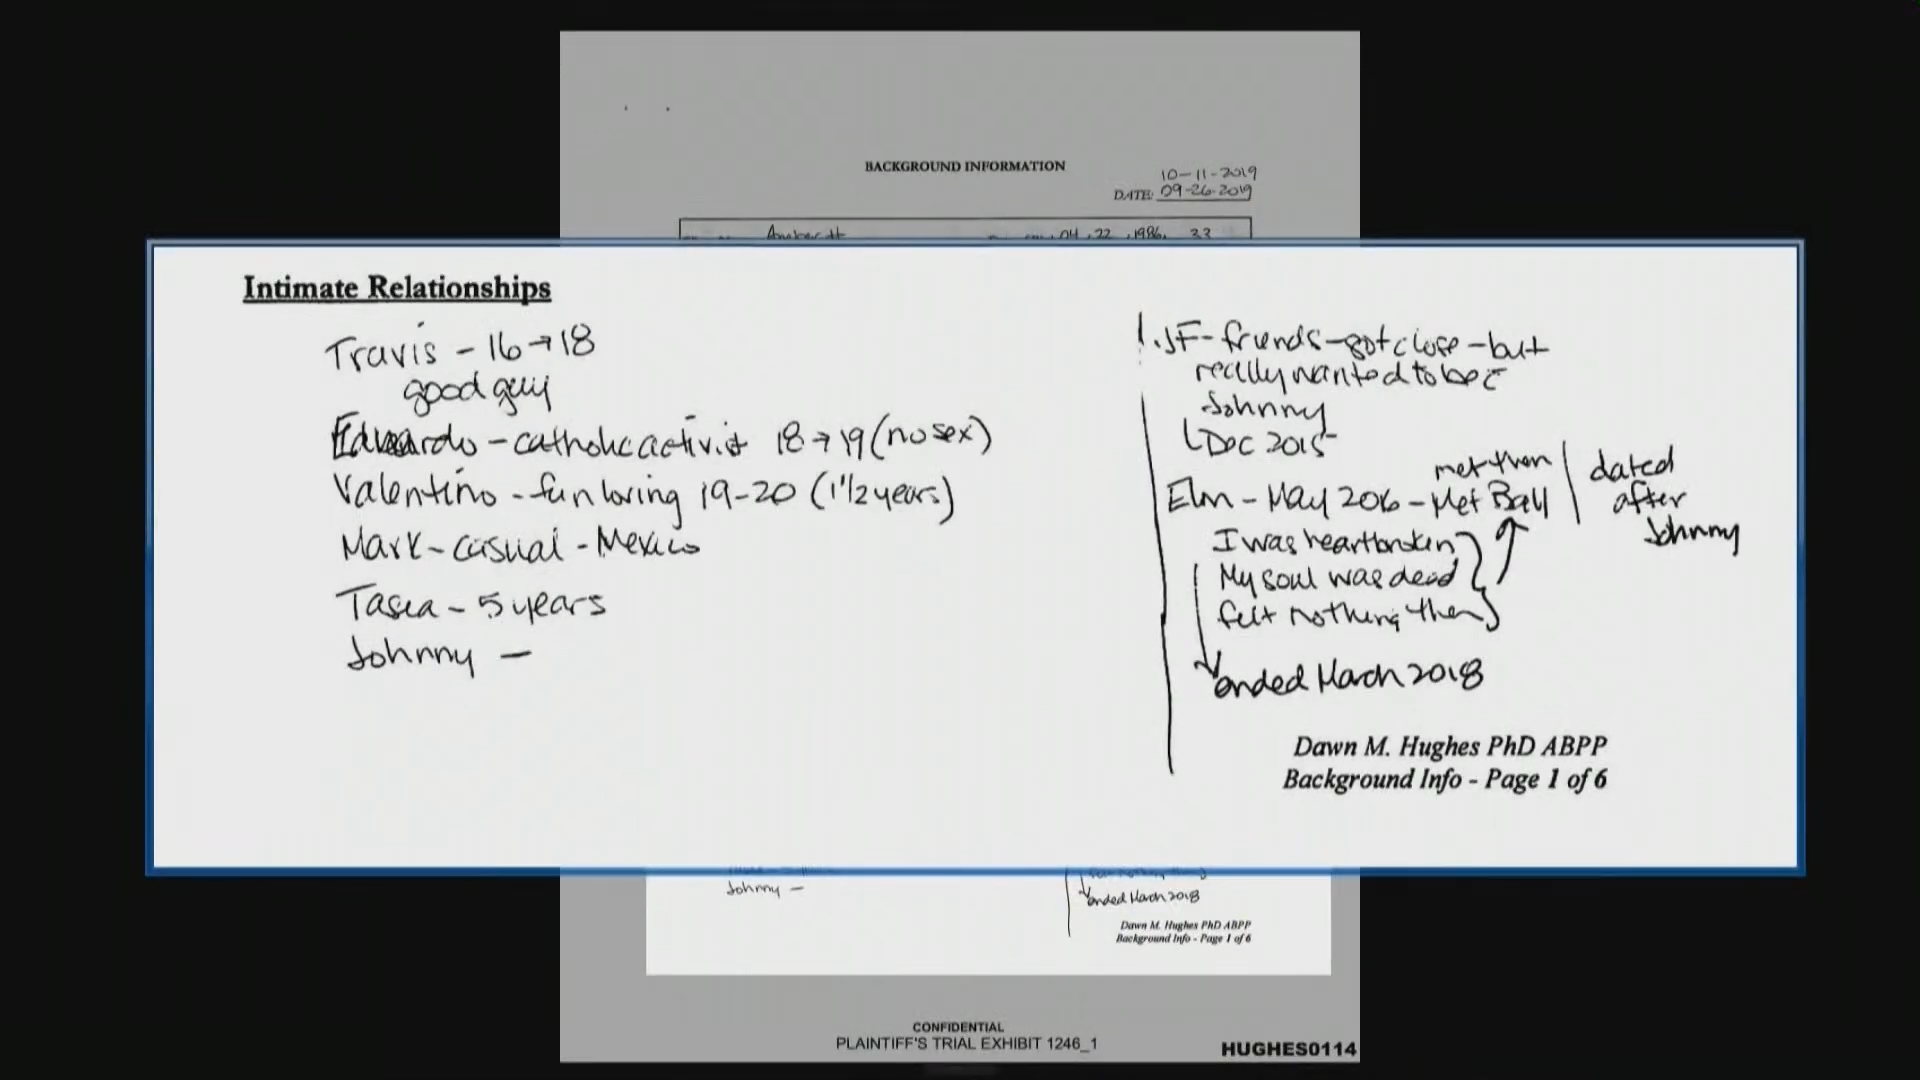 BACKGROUND INFORMATION
10-11-2019
DATE: 09-26-2019
Amber H
04 22 1986 33
Intimate Relationships
Travis - 16→18
good guy
Eduardo - catholic activist 18→19 (no sex)
Valentino - fun loving 19-20 (1 1/2 years)
Mark - casual - Mexico
Tasia - 5 years
Johnny —
JF - friends - got close - but
really wanted to be c̄
Johnny
Dec 2015
met then
Elon - May 2016 - Met Ball
dated
after
Johnny
I was heartbroken
My soul was dead
felt nothing then
ended March 2018
Dawn M. Hughes PhD ABPP
Background Info - Page 1 of 6
Johnny —
ended March 2018
Dawn M. Hughes PhD ABPP
Background Info - Page 1 of 6
CONFIDENTIAL
PLAINTIFF'S TRIAL EXHIBIT 1246_1
HUGHES0114